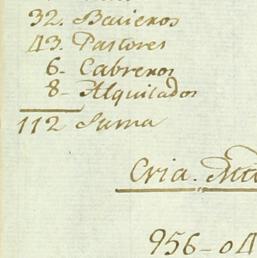 32. Baueros
43. Pastores
6- Cabreros
8- Alquilados
112 Suma
Cria.
956-04